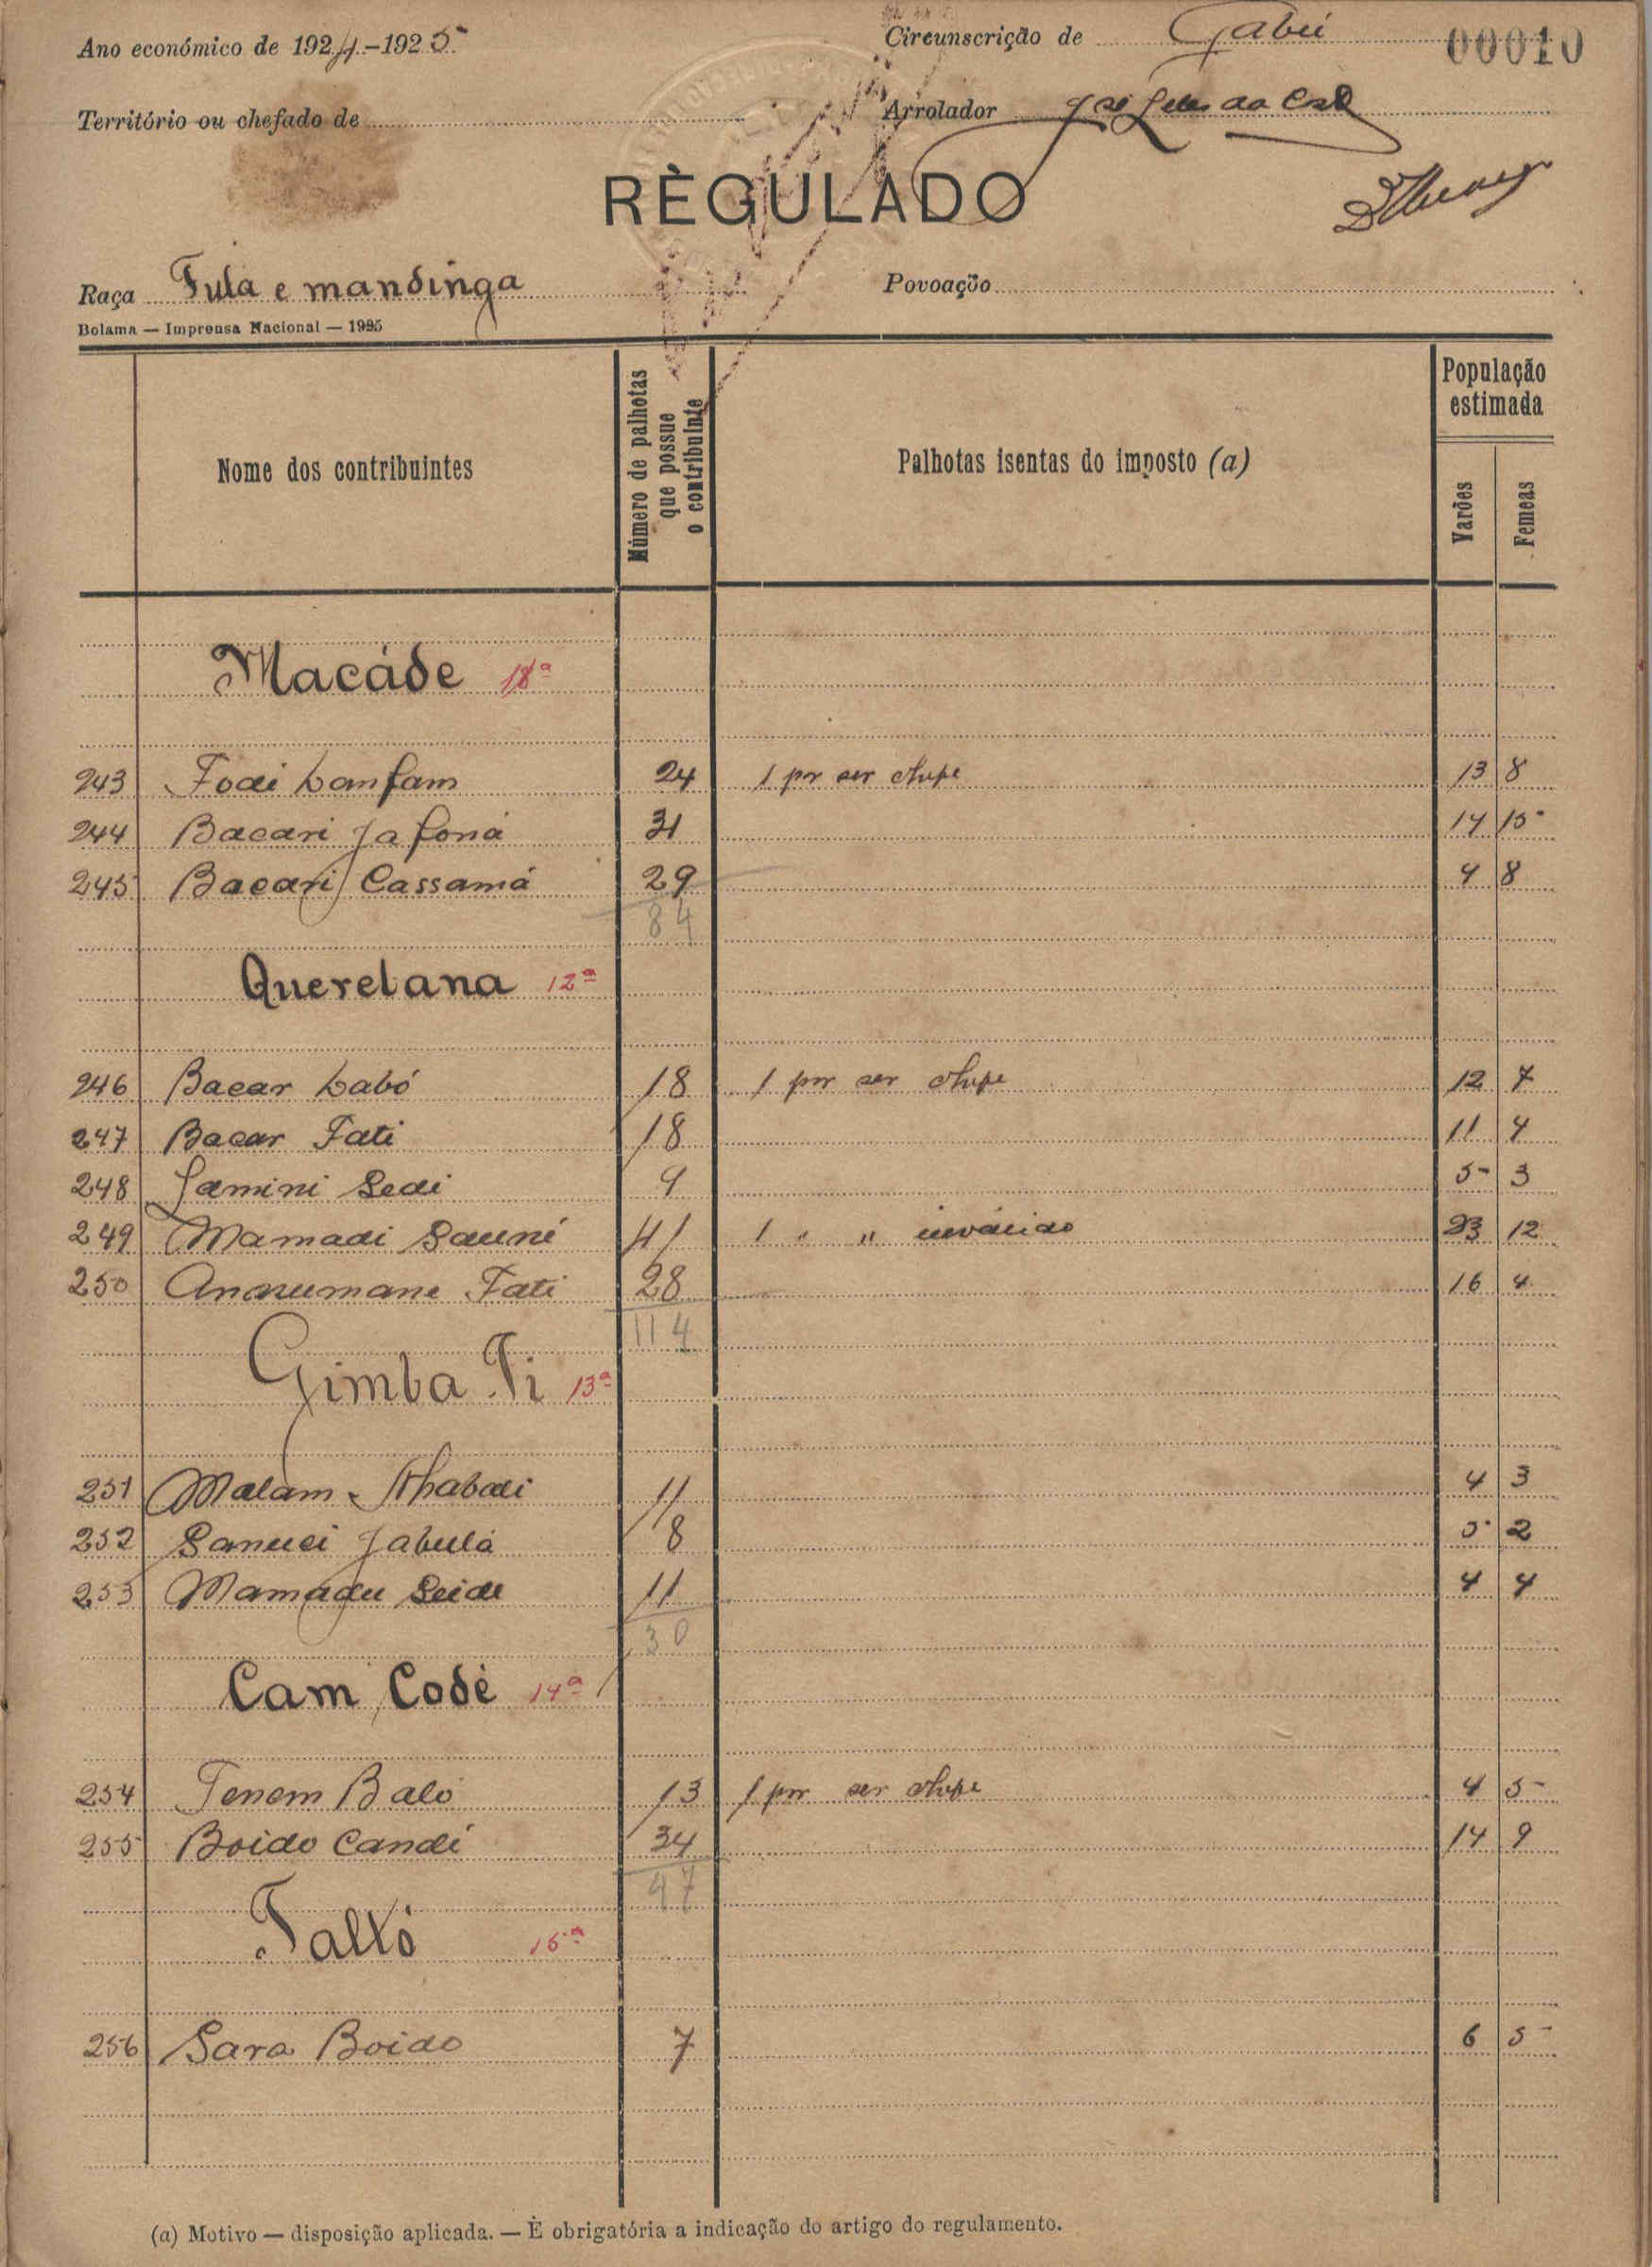 Ano económico de 1924-1925
Circunscrição de Gabú
00010
Território ou chefado de
Arrolador
RÈGULADO
Raça Fula e mandinga
Povoação
Bolama — Imprensa Nacional — 1925
Nome dos contribuintes
Número de palhotas que possue o contribuinte
Palhotas isentas do imposto (a)
População estimada
Varões
Femeas
Macáde 18ª
243 Fodi Lanfam 24 1 por ser chefe 13 8
244 Bacari Jafoná 31 14 15
245 Bacari Cassamá 29 4 8
84
Querelana 12ª
246 Bacar Labó 18 1 por ser chefe 12 7
247 Bacar Fati 18 11 4
248 Lamini Sedi 9 5 3
249 Mamadi Sauné 41 1 " " inválido 23 12
250 Andrumane Fati 28 16 4
114
Gimba Ti 13ª
251 Malam 11 4 3
252 Sanuci Jabulá 8 5 2
253 Mamadu Seide 11 4 4
30
Cam Codé 14ª
254 Tenem Baló 13 1 por ser chefe 4 5
255 Boido Candí 34 14 9
47
15ª
256 Sara Boido 7 6 5
(a) Motivo — disposição aplicada. — È obrigatória a indicação do artigo do regulamento.